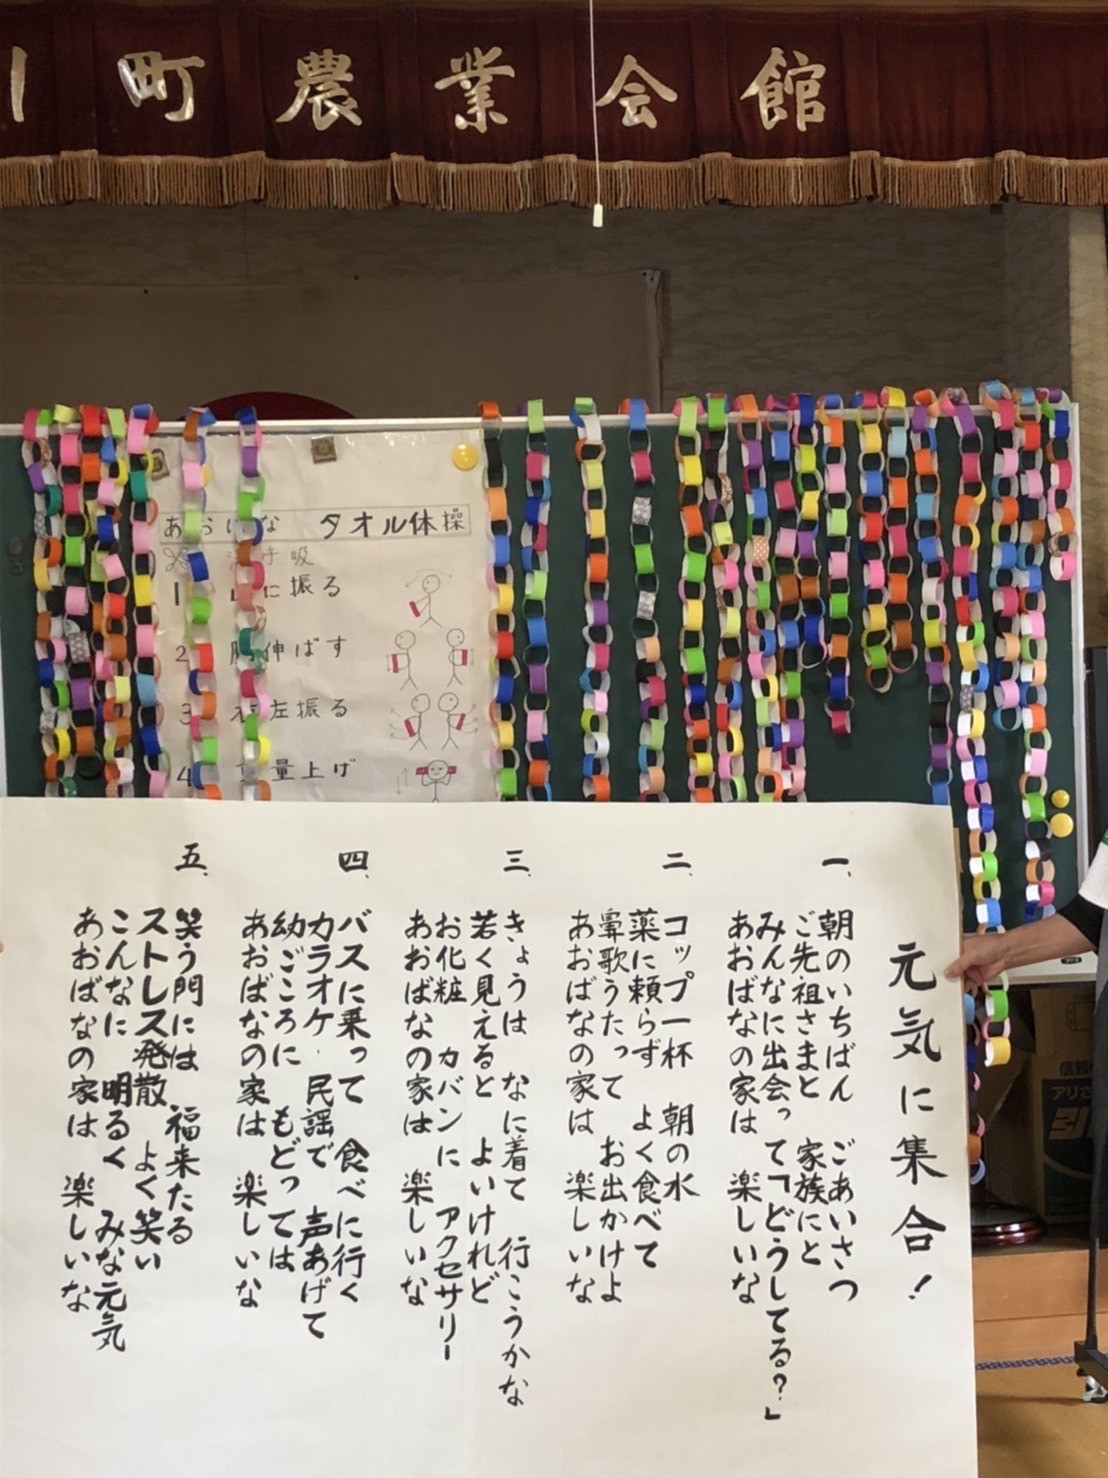 町農業会館
あおばな タオル体操
深呼吸
1 上に振る
2 胸伸ばす
3 右左振る
4 重量上げ
元気に集合!
一、朝のいちばん ごあいさつ
ご先祖さまと 家族にと
みんなに出会って「どうしてる?」
あおばなの家は 楽しいな
二、コップ一杯 朝の水
薬に頼らず よく食べて
鼻歌うたって お出かけよ
あおばなの家は 楽しいな
三、きょうは なに着て 行こうかな
若く見えると よいけれど
お化粧 カバンに アクセサリー
あおばなの家は 楽しいな
四、バスに乗って 食べに行く
カラオケ・民謡で 声あげて
幼ごころに もどっては
あおばなの家は 楽しいな
五、笑う門には 福来たる
ストレス発散 よく笑い
こんなに 明るく みな元気
あおばなの家は 楽しいな